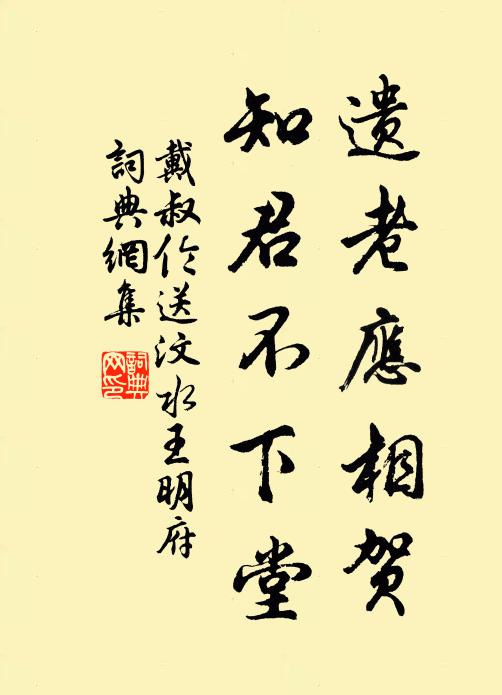 遺老應相賀
知君不下堂
戴叔伦送汶水王明府
詞典網集
詞典网印